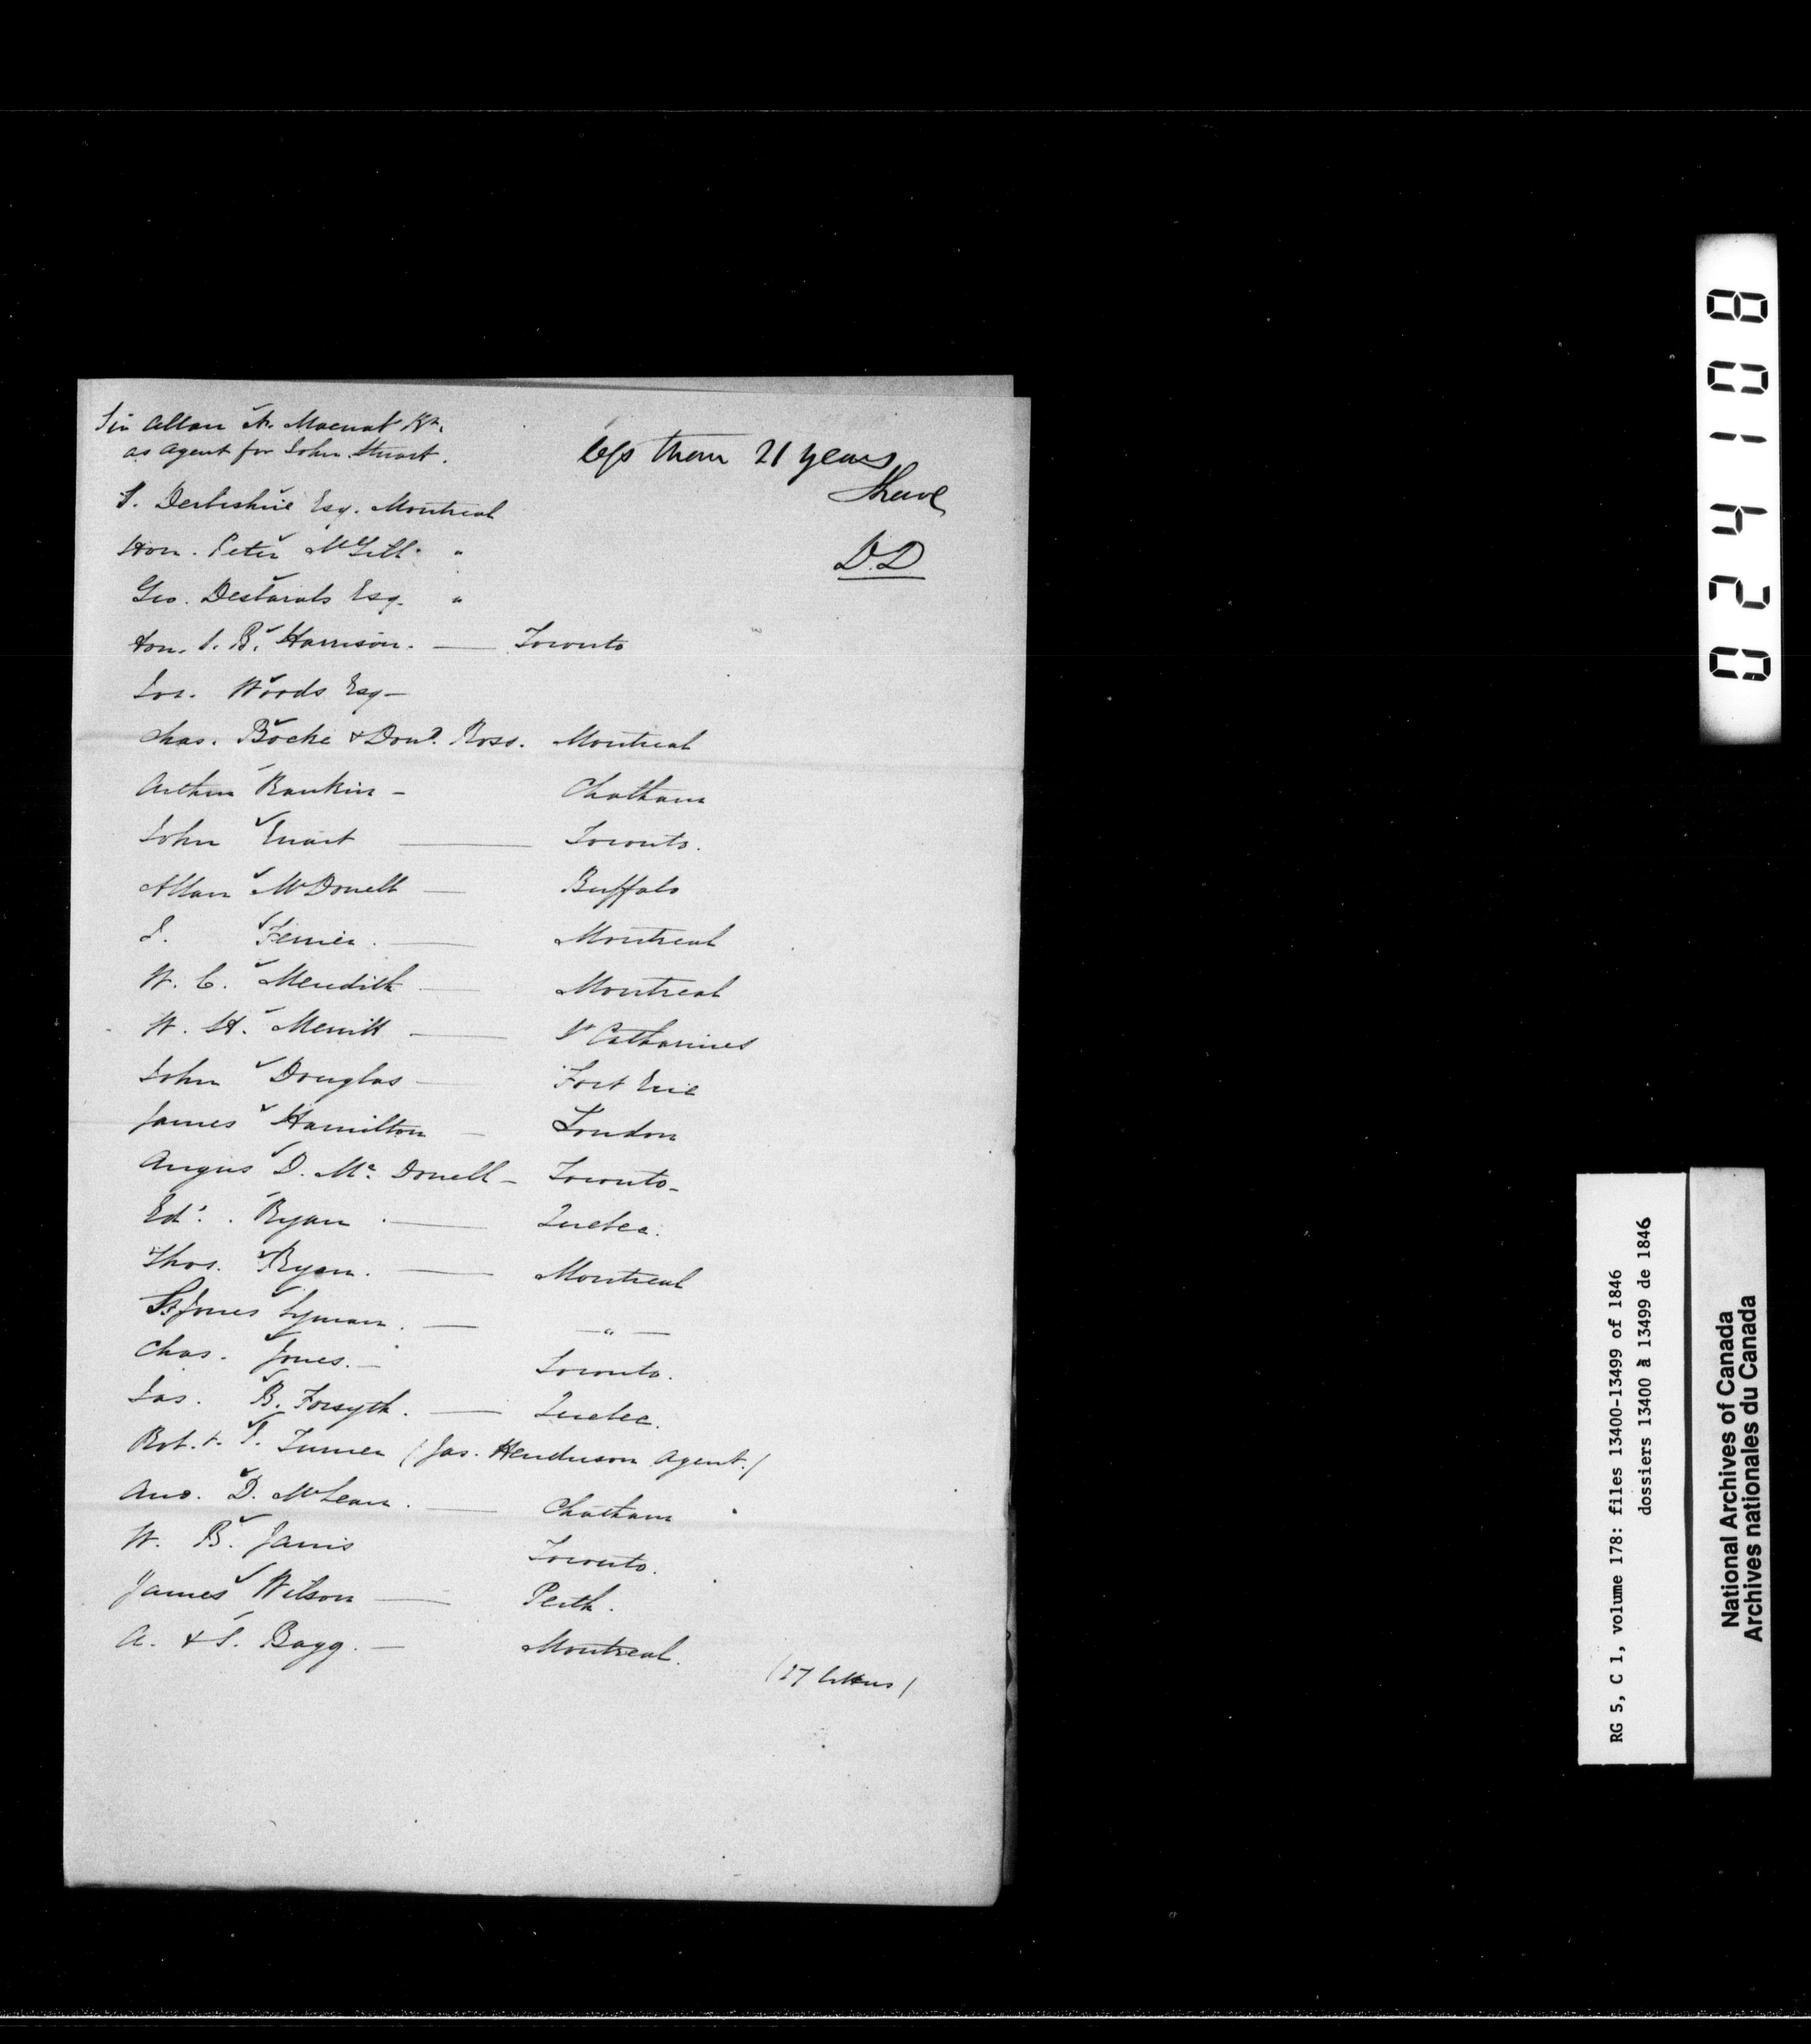 Sir Allan N. Macnab Kt.
as Agent for John Stuart.
less than 21 years
D.D
S. Derbishire Esq. Montreal
Hon. Peter McGill "
Geo. Desbarats Esq. "
Hon. S. B. Harrison. — Toronto
Jos. Woods Esq —
Chas. Bockus & Dond. Ross. Montreal
Arthur Rankin — Chatham
John Ewart — Toronto.
Allan McDonell — Buffalo
J. Ferrier. — Montreal
W. C. Meredith — Montreal
W. H. Merritt — St Catharines
John Douglas — Fort Erie
James Hamilton — London
Angus D. Mc. Donell — Toronto —
Edd. Ryan. — Quebec.
Thos. Ryan. — Montreal
St. Jones Lyman. — — " —
Chas. Jones. — Toronto.
Jas. B. Forsyth. — Quebec.
Rob. & J. Turner (Jas. Henderson Agent.)
And. D. McLean. — Chatham
W. B. Jarvis Toronto.
James Wilson — Perth.
A. & S. Bagg. — Montreal.
(27 letters)
0241108
RG 5, C 1, volume 178: files 13400-13499 of 1846
dossiers 13400 à 13499 de 1846
National Archives of Canada
Archives nationales du Canada